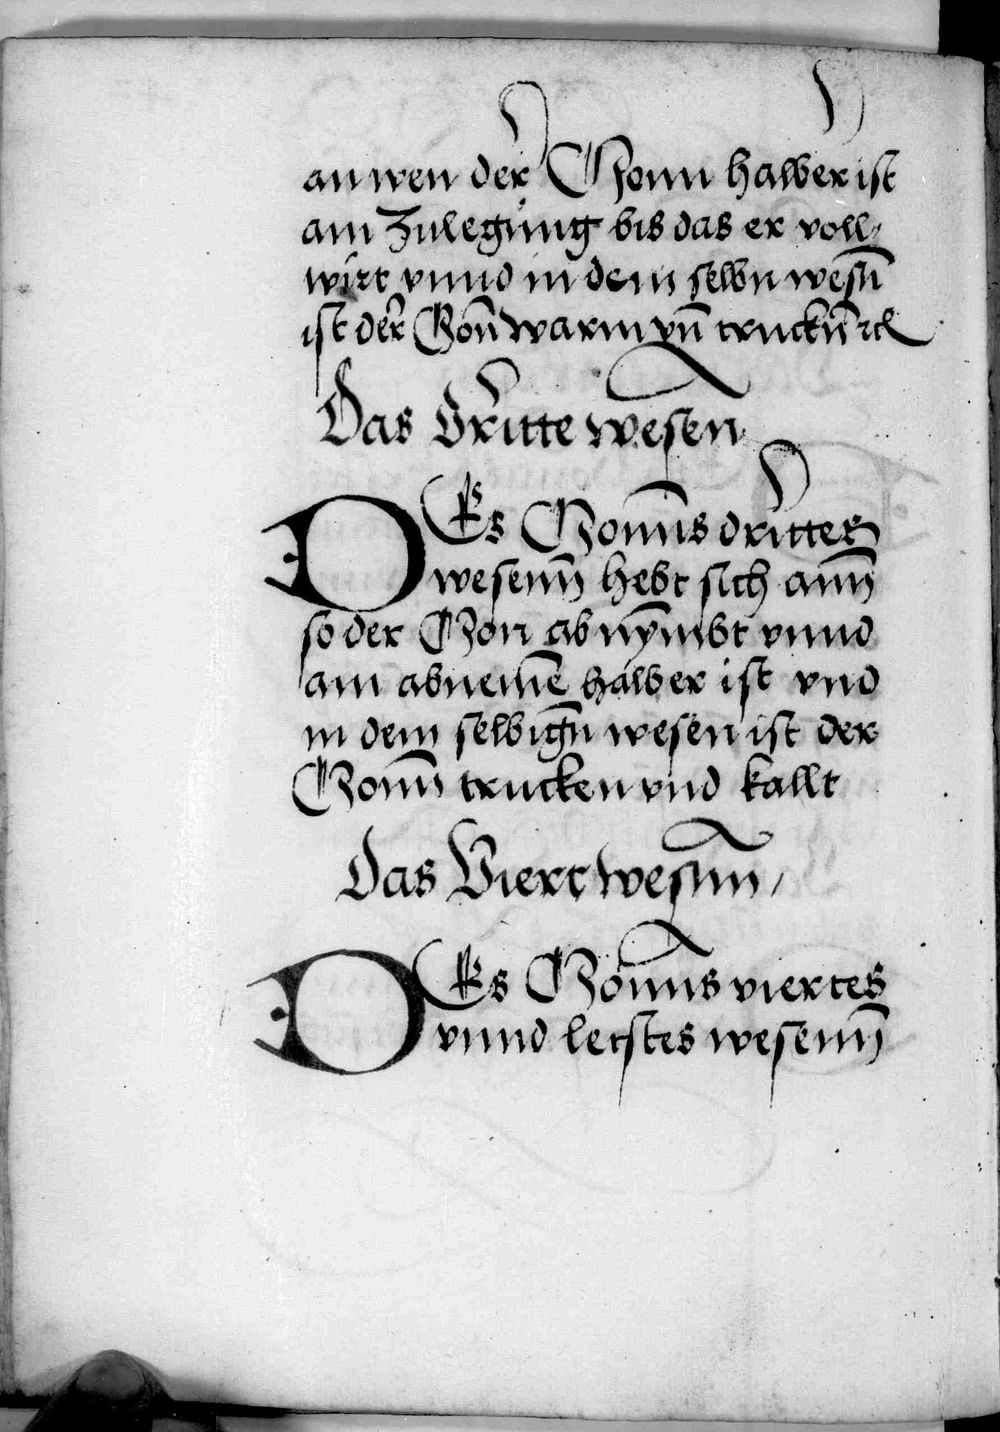 an wen der Monn halber ist
am Zulegung bis das er voll
wirt vnnd in dem selbn wesn̄
ist der Mon̄ warm vn̄ truckn̄ ꝛc
Das Dritte wesen
DEs Monn̄s dritter
wesenn̄ hebt sich ann̄
so der Mon ab nÿmbt vnnd
am abnemē halber ist vnd
in dem selbign̄ wesen ist der
Monn̄ trucken vnd kallt
Das Viert wesnn̄ /
DEs Monns viertes
vnnd letstes wesenn̄